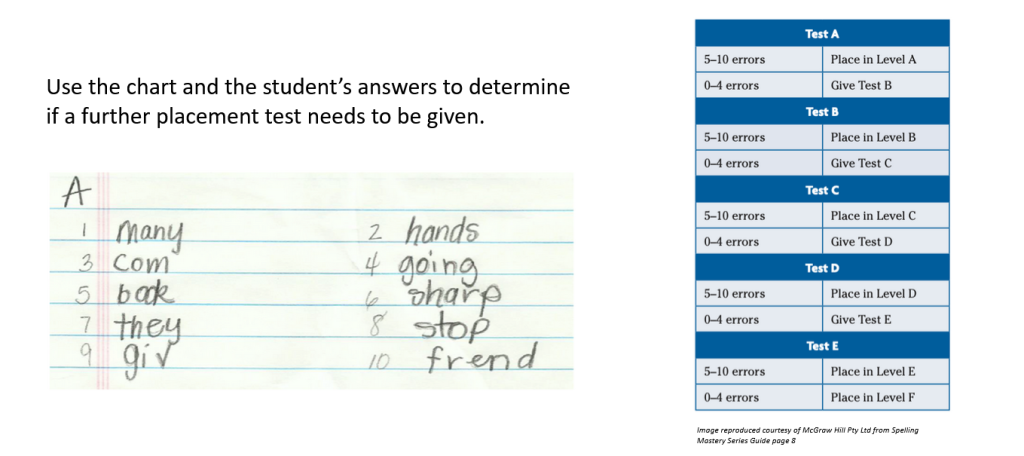 Use the chart and the student's answers to determine
if a further placement test needs to be given.
A
1 many 2 hands
3 com 4 going
5 book 6 sharp
7 they 8 stop
9 giv 10 frend
Test A
5–10 errors Place in Level A
0–4 errors Give Test B
Test B
5–10 errors Place in Level B
0–4 errors Give Test C
Test C
5–10 errors Place in Level C
0–4 errors Give Test D
Test D
5–10 errors Place in Level D
0–4 errors Give Test E
Test E
5–10 errors Place in Level E
0–4 errors Place in Level F
Image reproduced courtesy of McGraw Hill Pty Ltd from Spelling
Mastery Series Guide page 8